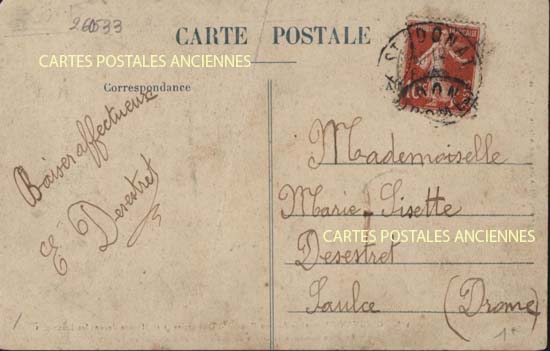 26533
CARTE POSTALE
CARTES POSTALES ANCIENNES
Correspondance
Baiser affectueux
E Desestret
ST DONAT
Mademoiselle
Marie-Lisette
CARTES POSTALES ANCIENNES
Desestret
Saulce (Drome)